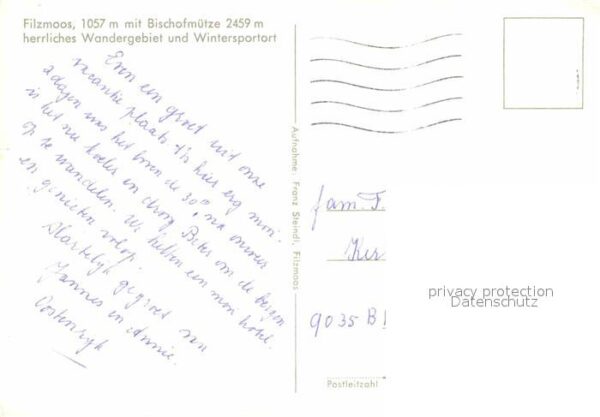 Filzmoos, 1057 m mit Bischofmütze 2459 m
herrliches Wandergebiet und Wintersportort
Even een groet uit onze
vacantie plaats. 't Is hier erg mooi.
2 dagen was het boven de 30° na onweer
is het nu koeler en droog. Beter om de bergen
op te wandelen. We hebben een mooi hotel
en genieten volop.
Hartelijk gegroet van
Jannes en Annie.
Oostenryk
Aufnahme: Franz Steindl, Filzmoos
fam. T
Ker
9035 B
Postleitzahl
privacy protection
Datenschutz